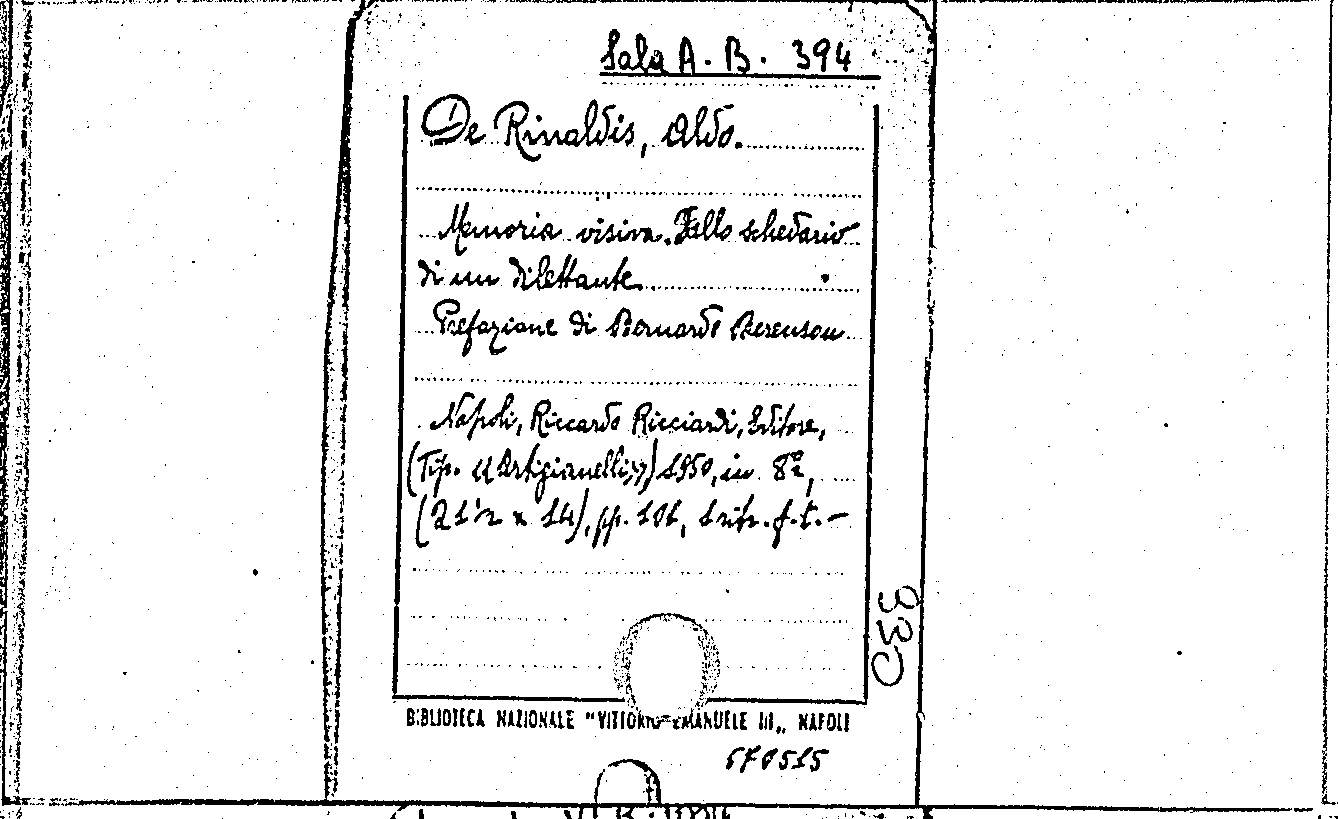 Sala A. B. 394
De Rinaldis, Aldo.
Memoria visiva. Dallo schedario
di un dilettante.
Prefazione di Bernardo Berenson
Napoli, Riccardo Ricciardi, Editore,
(Tip. "Artigianelli,,) 1950, in 8º,
(21½ x 14), pp. 101, 1 ritr. f. t. -
330
BIBLIOTECA NAZIONALE "VITTORIO EMANUELE III,, NAPOLI
670515